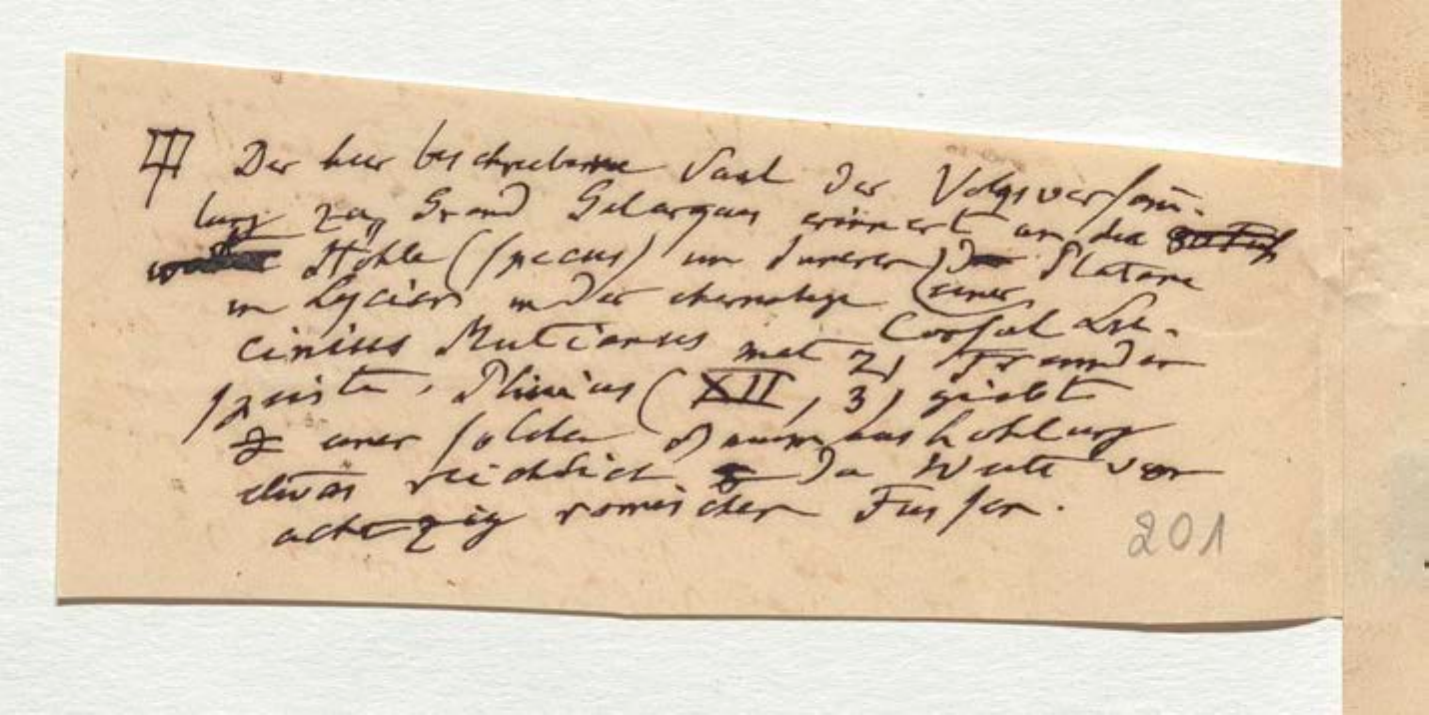 Der hier beschriebene Saal der Volgsversam̄-
lung zu Grand Galargues erinnert an die
Höhle (specus) im Inneren einer Platane
in Lycien in der ehemalige Consul Li-
cinius Mutianus mit 21 Fremden
speiste. Plinius (XII, 3) giebt
einer solchen Baumaushohlung
etwas reichlich die Weite von
achtzig romischen Fussen.
201